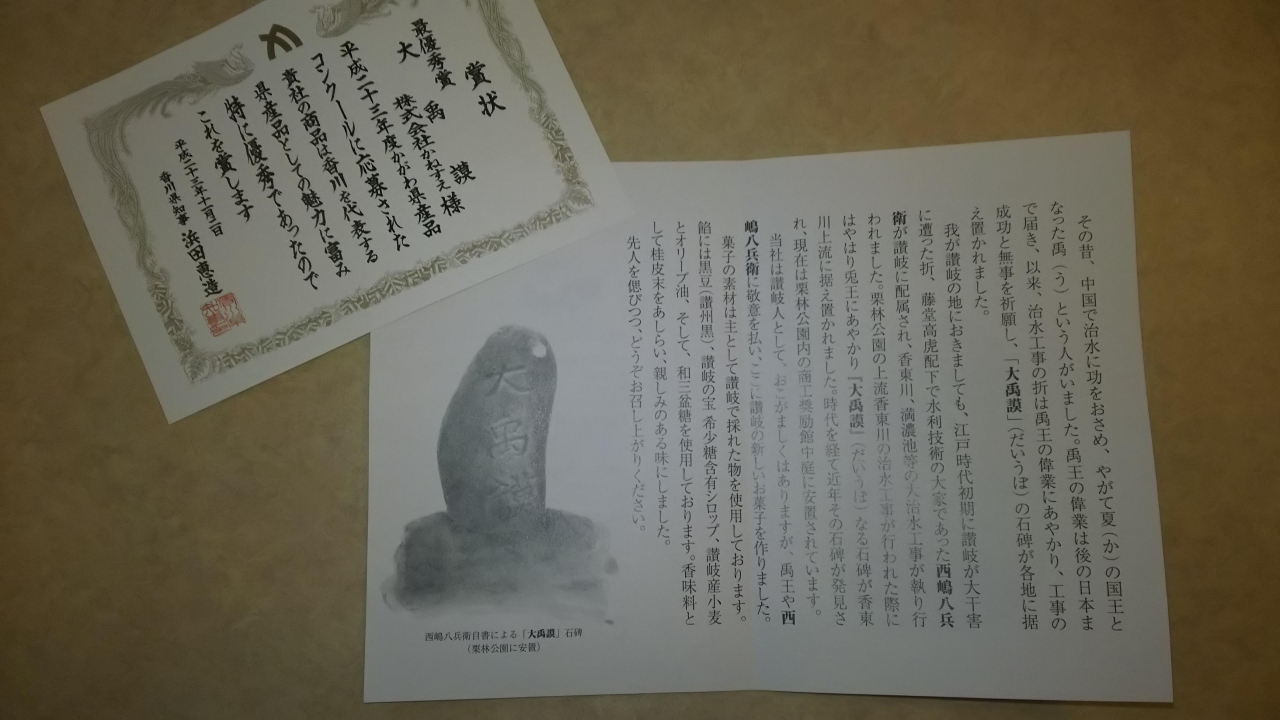 賞状
最優秀賞
大禹謨
株式会社かねすえ様
平成二十三年度かがわ県産品
コンクールに応募された
貴社の商品は香川を代表する
県産品としての魅力に富み
特に優秀であったので
これを賞します
平成二十三年十一月二日
香川県知事 浜田恵造
その昔、中国で治水に功をおさめ、やがて夏（か）の国王と
なった禹（う）という人がいました。禹王の偉業は後の日本ま
で届き、以来、治水工事の折は禹王の偉業にあやかり、工事の
成功と無事を祈願し、「大禹謨」（だいうぼ）の石碑が各地に据
え置かれました。
我が讃岐の地におきましても、江戸時代初期に讃岐が大干害
に遭った折、藤堂高虎配下で水利技術の大家であった西嶋八兵
衛が讃岐に配属され、香東川、満濃池等の大治水工事が執り行
われました。栗林公園の上流香東川の治水工事が行われた際に
はやはり禹王にあやかり『大禹謨』（だいうぼ）なる石碑が香東
川上流に据え置かれました。時代を経て近年その石碑が発見さ
れ、現在は栗林公園内の商工奨励館中庭に安置されています。
当社は讃岐人として、おこがましくはありますが、禹王や西
嶋八兵衛に敬意を払い、ここに讃岐の新しいお菓子を作りました。
菓子の素材は主として讃岐で採れた物を使用しております。
餡には黒豆（讃州黒）、讃岐の宝 希少糖含有シロップ、讃岐産小麦
とオリーブ油、そして、和三盆糖を使用しております。香味料と
して桂皮末をあしらい、親しみのある味にしました。
先人を偲びつつ、どうぞお召し上がりください。
大禹謨
西嶋八兵衛自書による「大禹謨」石碑
（栗林公園に安置）